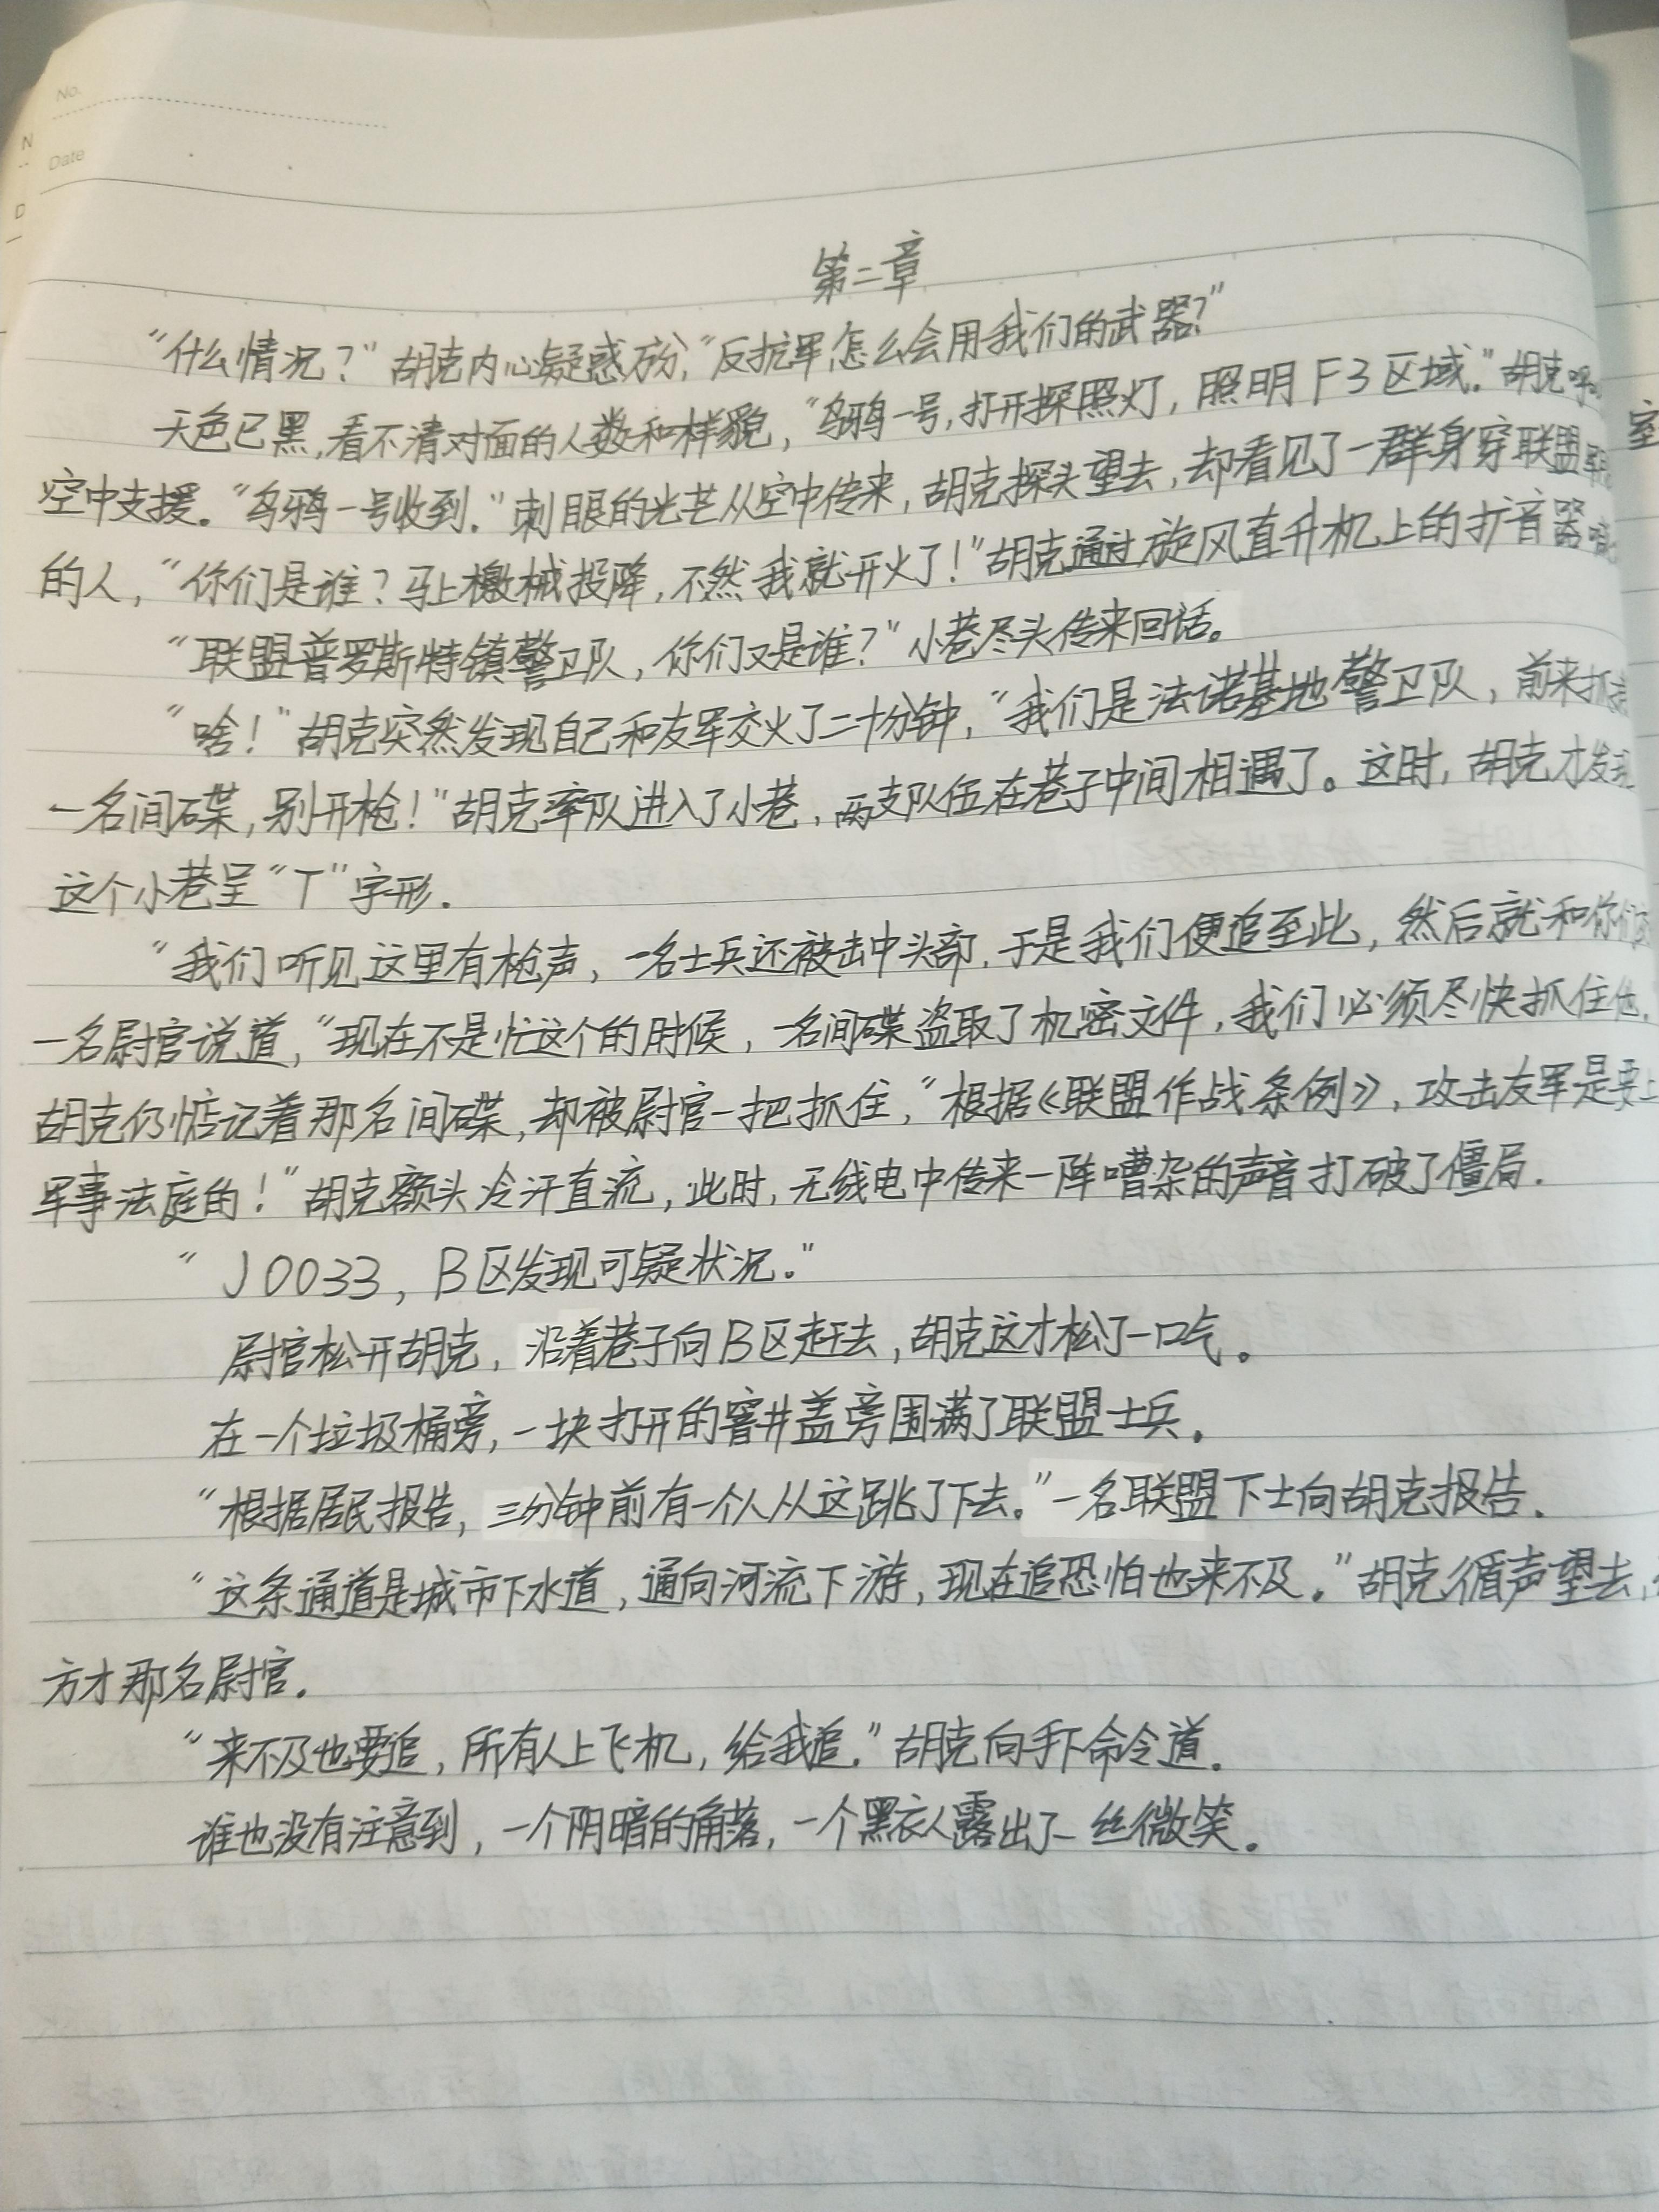 No.
Date
第二章
“什么情况？”胡克内心疑惑万分，“反抗军怎么会用我们的武器？”
天色已黑，看不清对面的人数和样貌，“乌鸦一号，打开探照灯，照明F3区域。”胡克呼
空中支援。“乌鸦一号收到。”刺眼的光芒从空中传来，胡克探头望去，却看见了一群身穿联盟
的人，“你们是谁？马上缴械投降，不然我就开火了！”胡克通过旋风直升机上的扩音器喊
“联盟普罗斯特镇警卫队，你们又是谁？”小巷尽头传来回话。
“啥！”胡克突然发现自己和友军交火了二十分钟，“我们是法诺基地警卫队，前来抓
一名间碟，别开枪！”胡克率队进入了小巷，两支队伍在巷子中间相遇了。这时，胡克才发现
这个小巷呈“T”字形。
“我们听见这里有枪声，一名士兵还被击中头部，于是我们便追至此，然后就和你们
一名尉官说道，“现在不是忙这个的时候，一名间碟盗取了机密文件，我们必须尽快抓住他
胡克仍惦记着那名间碟，却被尉官一把抓住，“根据《联盟作战条例》，攻击友军是要上
军事法庭的！”胡克额头冷汗直流，此时，无线电中传来一阵嘈杂的声音打破了僵局．
“J0033，B区发现可疑状况。”
尉官松开胡克，沿着巷子向B区赶去，胡克这才松了一口气。
在一个垃圾桶旁，一块打开的窨井盖旁围满了联盟士兵．
“根据居民报告，三分钟前有一个人从这跳了下去。”一名联盟下士向胡克报告．
“这条通道是城市下水道，通向河流下游，现在追恐怕也来不及．”胡克循声望去，
方才那名尉官．
“来不及也要追，所有人上飞机，给我追．”胡克向手下命令道．
谁也没有注意到，一个阴暗的角落，一个黑衣人露出了一丝微笑。